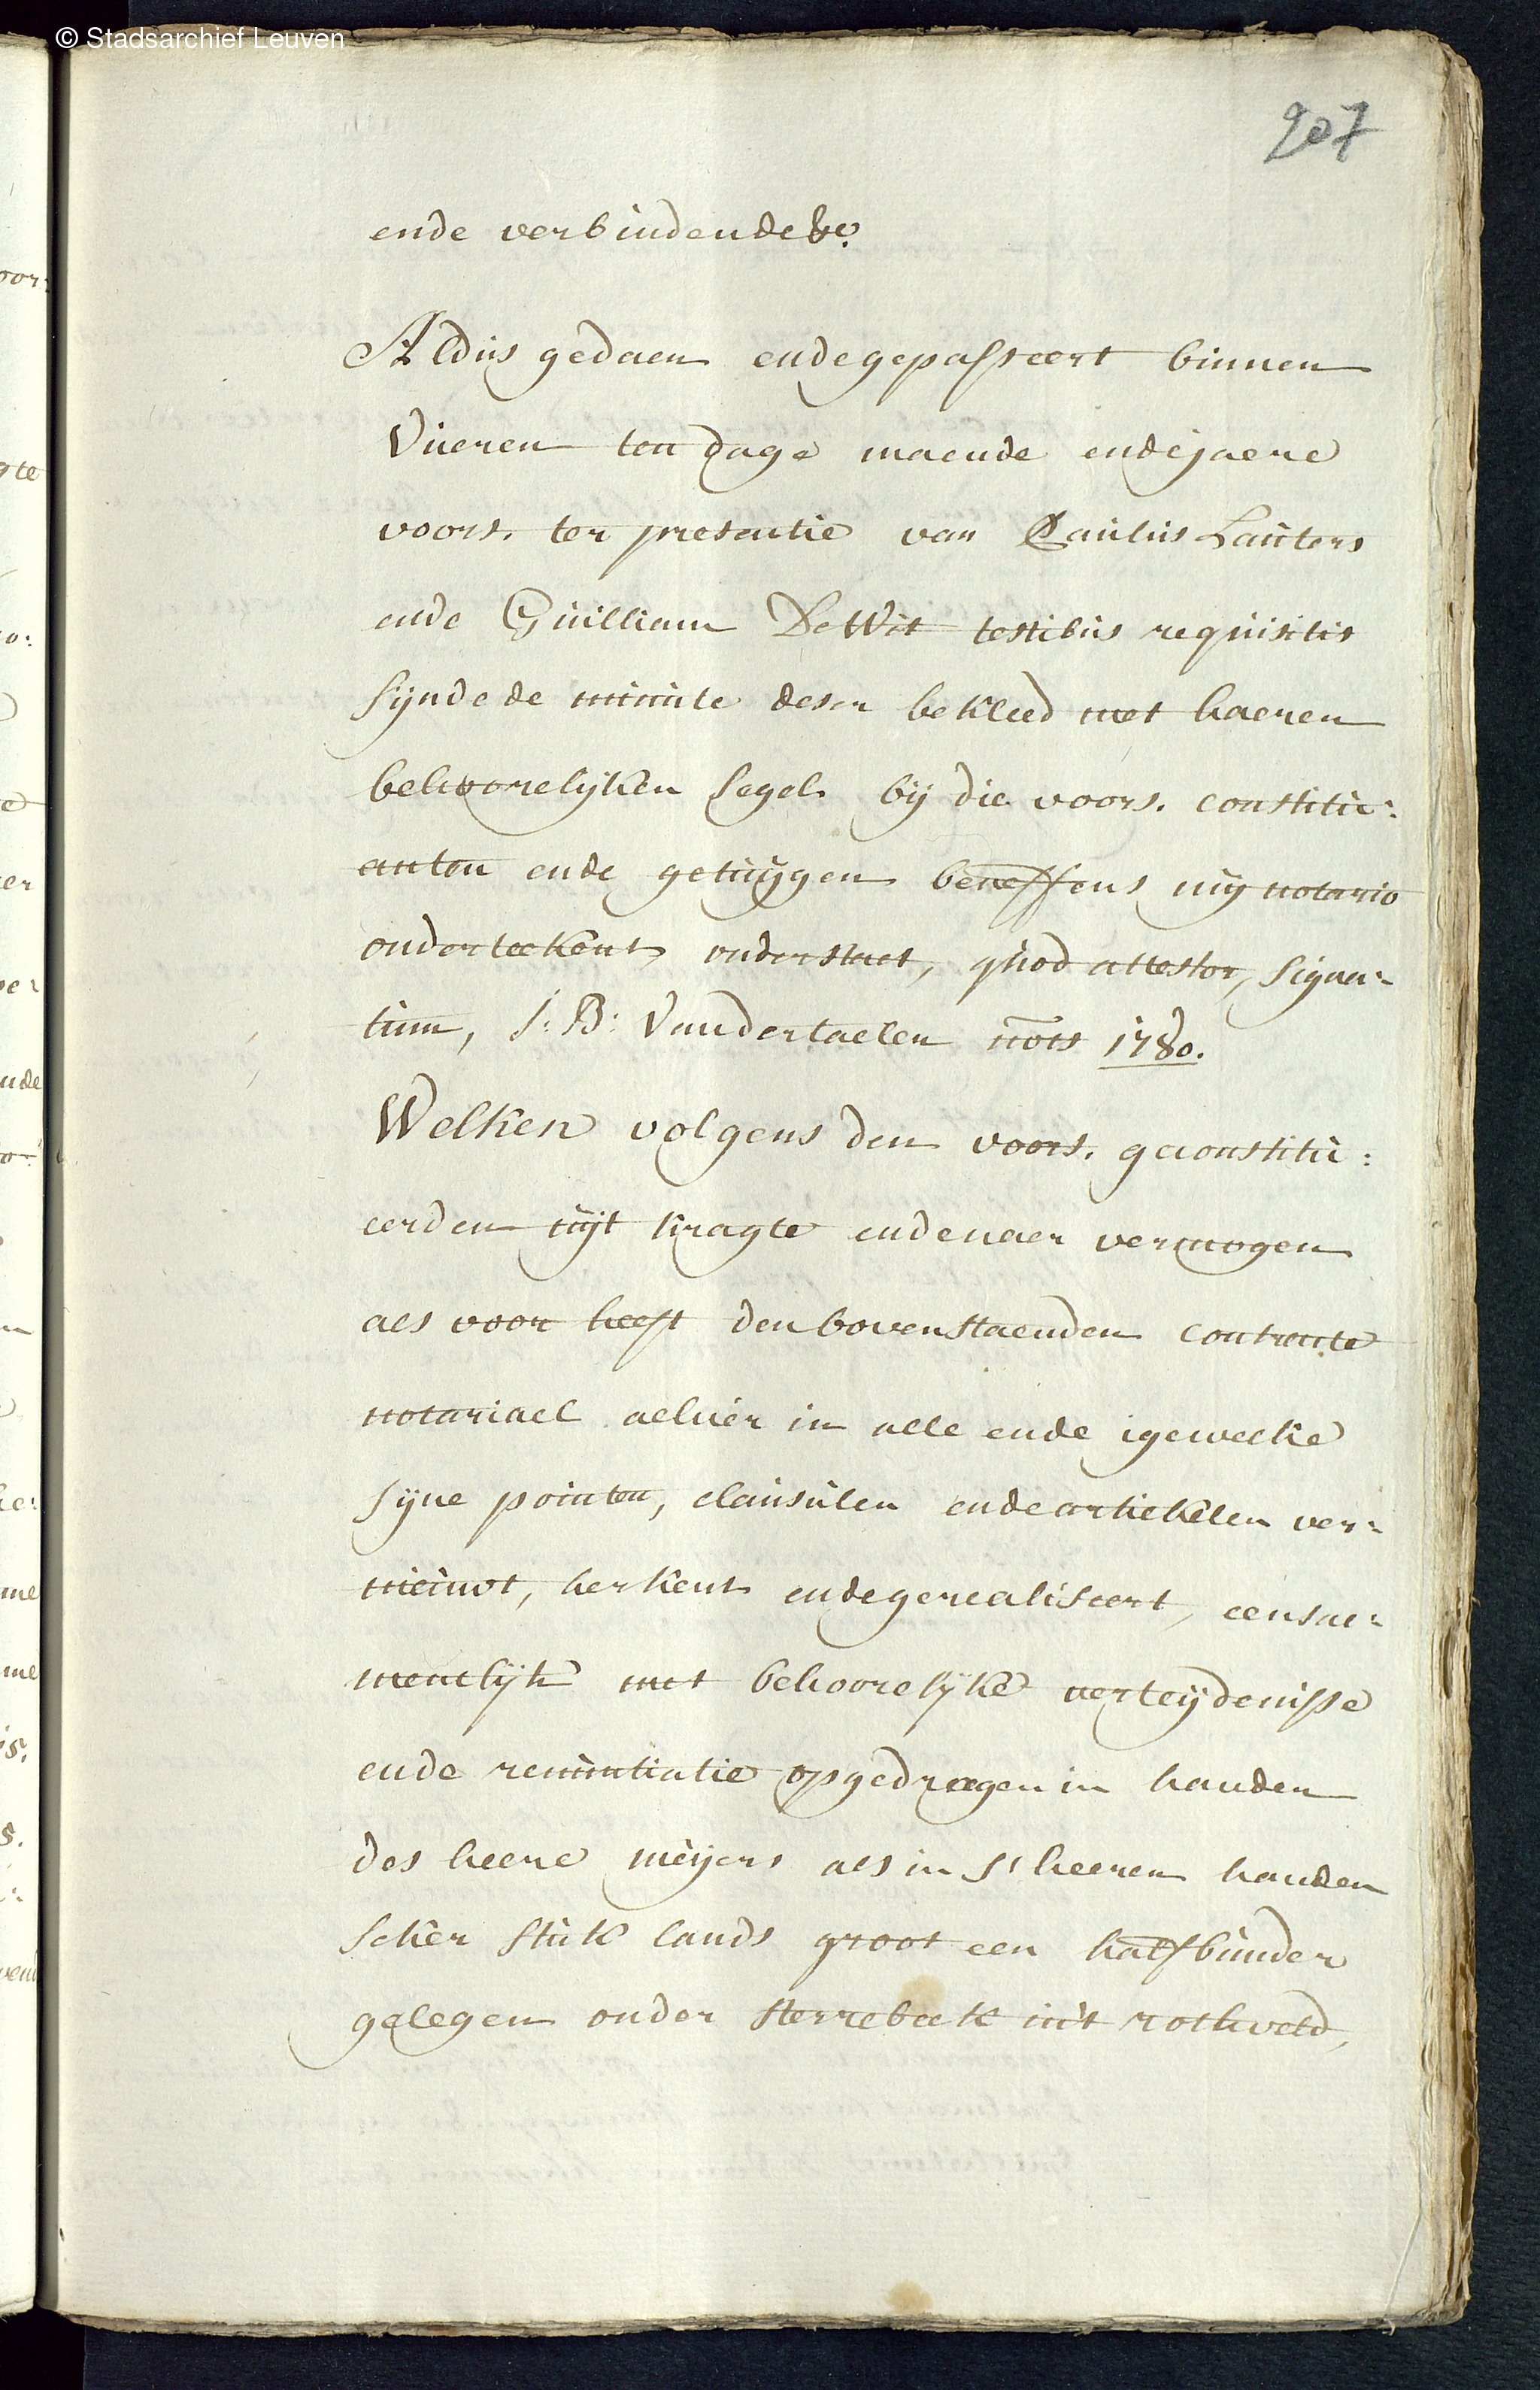 © Stadsarchief Leuven
207
ende verbindende &c.
Aldus gedaen ende gepasseert binnen
Vueren ten dage maende ende jaere
voors. ter presentie van Paulus Lauters
ende Guilliam De Wit testibus requisitis
sijnde de minute deser bekleed met haeren
behoorelijken segel bij die voors. constitu:
anten ende getuijgen beneffens mij notario
onderteekent, onderstaet, quod attestor, signa:
tum, J: B: Vandertaelen nõts 1780.
Welken volgens den voors. geconstitu:
eerden uijt kragte ende naer vermogen
als voor heeft den bovenstaenden contracte
notariael alhier in alle ende igewelke
sijne pointen, clausulen ende artiekelen ver:
nieuwt, herkent ende gerealiseert, eensae:
mentlijk met behoorelijke verteijdenisse
ende renuntiatie opgedraegen in handen
des heere meijers als in s'heeren handen
seker stuk lands groot een half bunder
gelegen onder Sterrebeek in't rothveld,